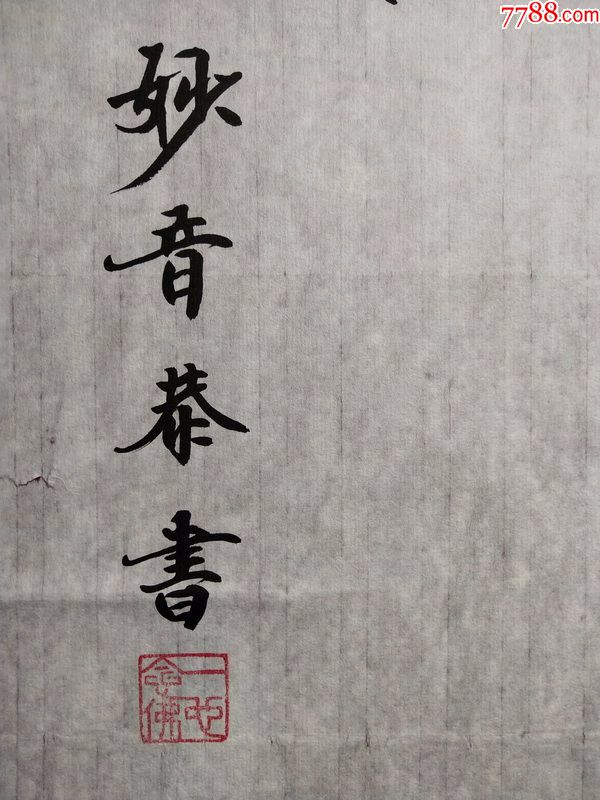 7788.com
妙音恭書
一心
念佛